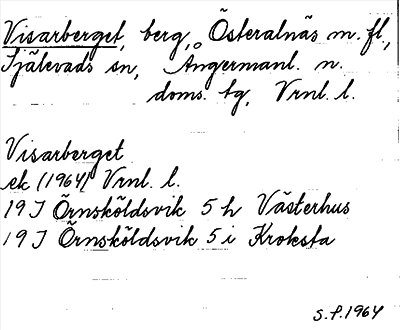 Visarberget, berg, Österalnäs m. fl.,
Själevads sn, Ångermanl. n.
doms. tg, Vrnl. l.
Visarberget
ek (1964) Vrnl. l.
19 J Örnsköldsvik 5 h Västerhus
19 J Örnsköldsvik 5 i Kroksta
S. P. 1964